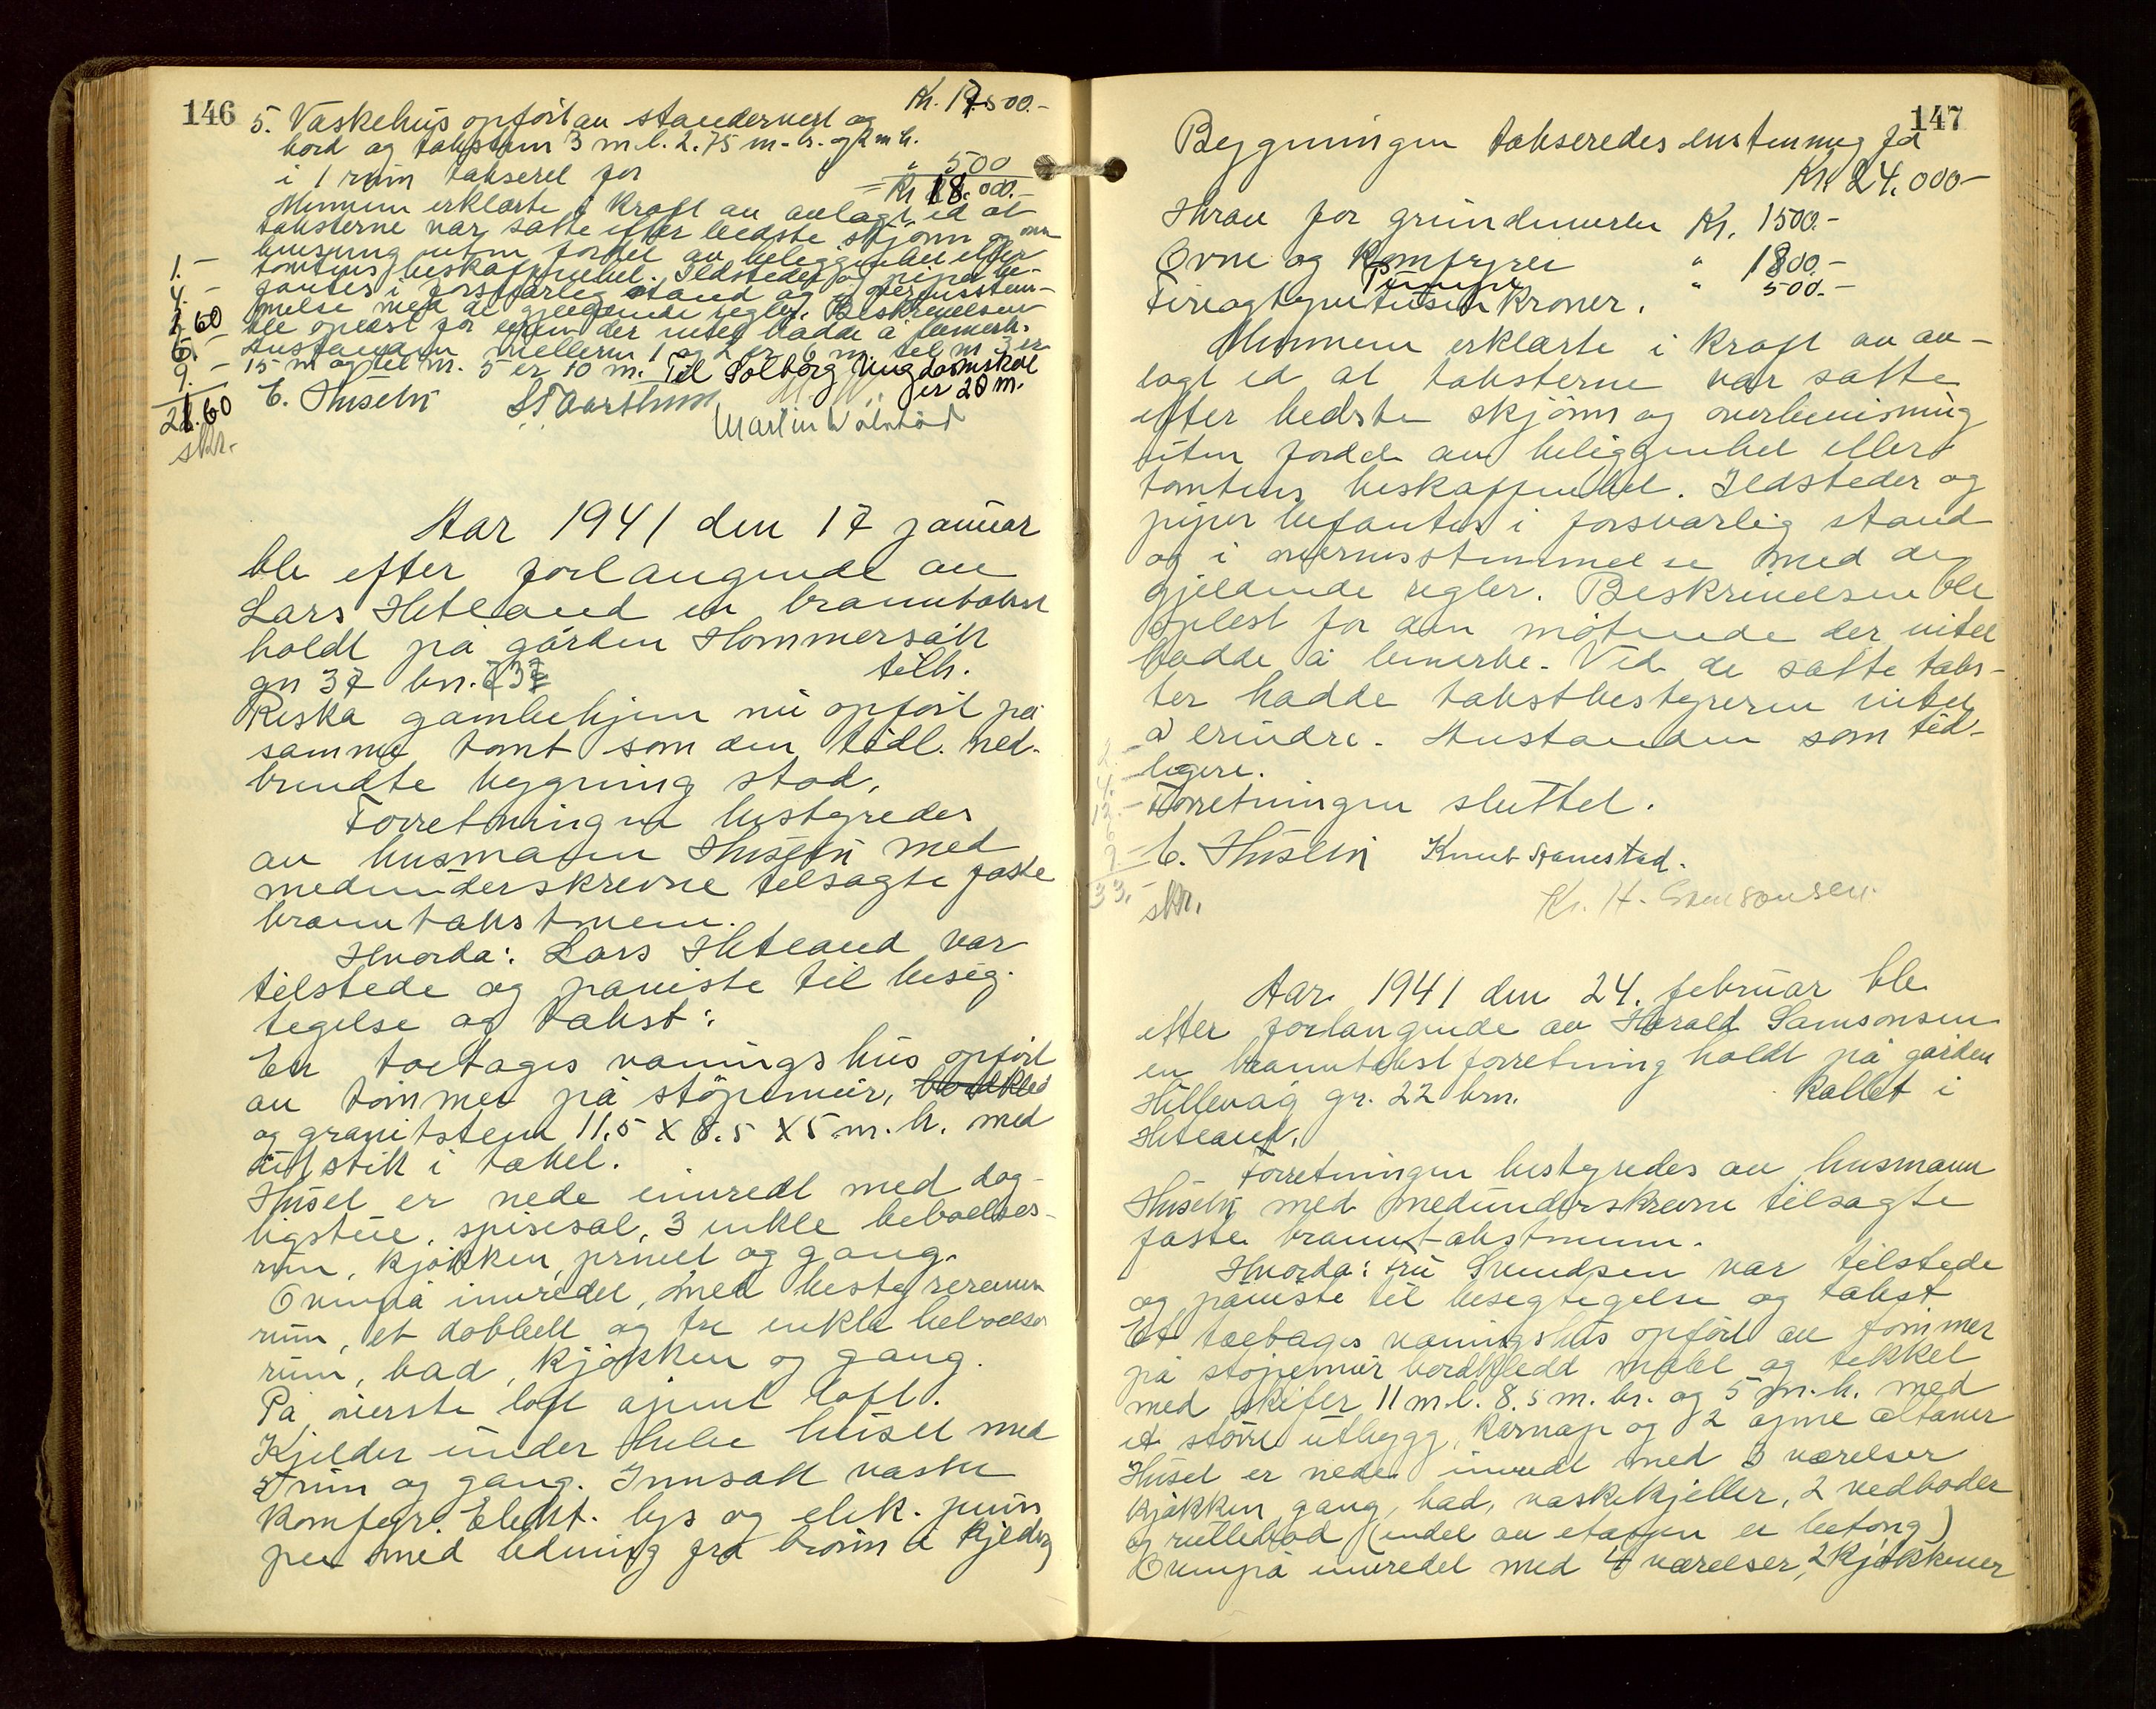 146
Kr. 17.500.-
5. Vaskehus opført av standerverk og
bord og takstein 3 m.l. 2.75 m. br. og 2 m h.
i 1 rum takseret for " 500
= Kr 18.000.-
Mennene erklærte i kraft av avlagt ed at
taksterne var satte efter bedste skjønn og over
bevisning uten fordel av beliggenhet eller
tomtens beskaffenhet. Ildsteder og piper be-
1.- fantes i forsvarlig stand og i overensstem-
4.- melse med de gjeldende regler. Beskrivelsen
2.60 ble oplest for eieren der intet hadde å bemerk.
5.- Avstanden mellem 1 og 2 er 6 m. til nr 3 er
9.- 15 m og til nr. 5 er 10 m. Til Solborg Ungdomskole
21.60 er 20 m.
skr.
E. Huselij
Martin
Aar 1941 den 17 januar
ble efter forlangende av
Lars Hetland en branntakst
holdt på gården Hommersåk
gn 37 bn. tilh.
Riska gamlehjem nu opført på
samme tomt som den tidl. ned-
brendte bygning stod.
Forretningen bestyredes
av husmann Huselij med
medunderskrevne tilsagte faste
branntakstmenn.
Hvorda: Lars Hetland var
tilstede og paaviste til besig-
tegelse og takst:
En toetages vaningshus opført
av tømmer på støpemur, bordkled
og granitstein 11.5 X 8.5 X 5 m. h. med
utstik i taket.
Huset er nede innredt med dag-
ligstue, spisesal, 3 enkle beboelses-
rum, kjøkken, privet og gang.
Ovenpå innredet, med bestyrerens
rum, et dobbelt og tre enkle beboelses
rum, bad, kjøkken og gang.
På øverste loft åpent loft.
Kjelder under hele huset med
rum og gang. Innsatt vaske
komfyr. Elekt. lys og elek. pum
pe med ledning fra brønn i kjelder
147
Bygningen takseredes enstemmig for
Kr. 24.000-
Herav for grundmuren Kr. 1500.-
Ovne og Komfyrer " 1800.-
Pumpe " 500.-
Fireogtyvetusen Kroner.
Mennene erklærte i kraft av av-
lagt ed at taksterne var satte
efter bedste skjønn og overbevisning
uten fordel av beliggenhet eller
tomtens beskaffenhet. Ildsteder og
piper befantes i forsvarlig stand
og i overensstemmelse med de
gjeldende regler. Beskrivelsen ble
oplest for den møtende der intet
hadde å bemerke. Ved de satte taks-
ter hadde takstbestyreren intet
å erindre. Avstanden som tid-
2.- ligere.
4.-
12.- Forretningen sluttet.
6
9.- E. Huselij Knut Stanestad.
33.-
skr. Kr. H. Samsonsen.
Aar 1941 den 24. februar ble
efter forlangende av Harald Samsonsen
en branntakstforretning holdt på gården
Hillevåg gr. 22 brn. kallet i
Hetland.
Forretningen bestyredes av husmann
Huselij med medunderskrevne tilsagte
faste branntakstmenn.
Hvorda: fru Svendsen var tilstede
og paaviste til besegtigelse og takst
Et toetages vaningshus opført av tømmer
på støpemur bordkledd malet og tekket
med skifer 11 m.l. 8.5 m. br. og 5 m. h. med
et større utbygg, karnap og 2 åpne altaner
Huset er nede innredt med 3 værelser
kjøkken, gang, bad, vaskekjeller, 2 vedboder
og rullebod (endel av etagen er betong)
Ovenpå innredet med 4 værelser, 2 kjøkkener